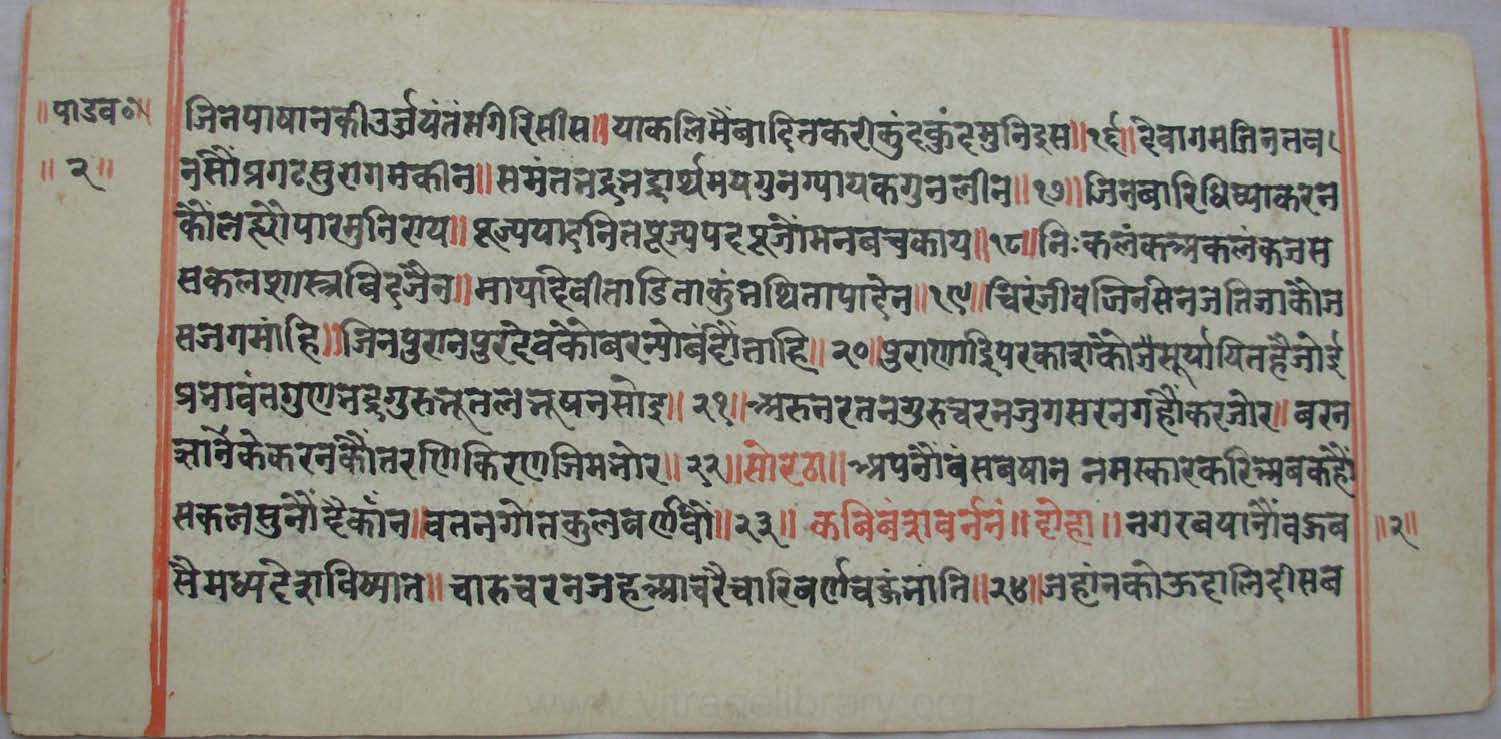 ॥पांडव०॥
॥२॥
जिनपाषानकीउर्ज्जयंतंसगिरिसीस॥याकलिमैंबादितकरीकुंदकुंदमुनिइस॥१६॥देवागमजिनतव
नसौंप्रगटसुरागमकीन॥समंतभद्रभद्रार्थमयगुनग्यायकगुनलीन॥१७॥जिनबारिधिव्याकरन
कौंलह्यौपारमुनिराय॥पूज्यपादनितपूज्यपदपूजौंमनबचकाय॥१८॥निःकलंकअकलंकजस
सकलशास्त्रबिदजैन॥मायादेवीताडिताकुंभथितापादेन॥१९॥चिरंजीवजिनसेनजतिजाकौज
सजगमांहि॥जिनपुरानपुरदेवकोबरन्योबंदौंताहि॥२०॥पुराणाद्रिपरकाशकोंजैसूर्यायितहैजोई
प्रभावंतगुणभद्रगुरुभूतलभूषनसोइ॥२१॥अरुनरतनगुरुचरनजुगसरनगहौंकरजोर॥बरन
ज्ञानेंकेकरनकौंतरणिकिरणजिमभोर॥२२॥सोरठा॥अपनौंबंसबषान नमस्कारकरिअबकहौं
सकलसुनौंदैकांन॥वतनगोतकुलबर्णवौं॥२३॥ कबिबंशवर्ननं॥दोहा॥नगरबयानौंवऊव
सैमध्यदेशविख्यात॥चारुचरनजहआचरैचारिबर्णवऊंभांति॥२४॥जहांनकोऊदालिद्दीसब
॥२॥